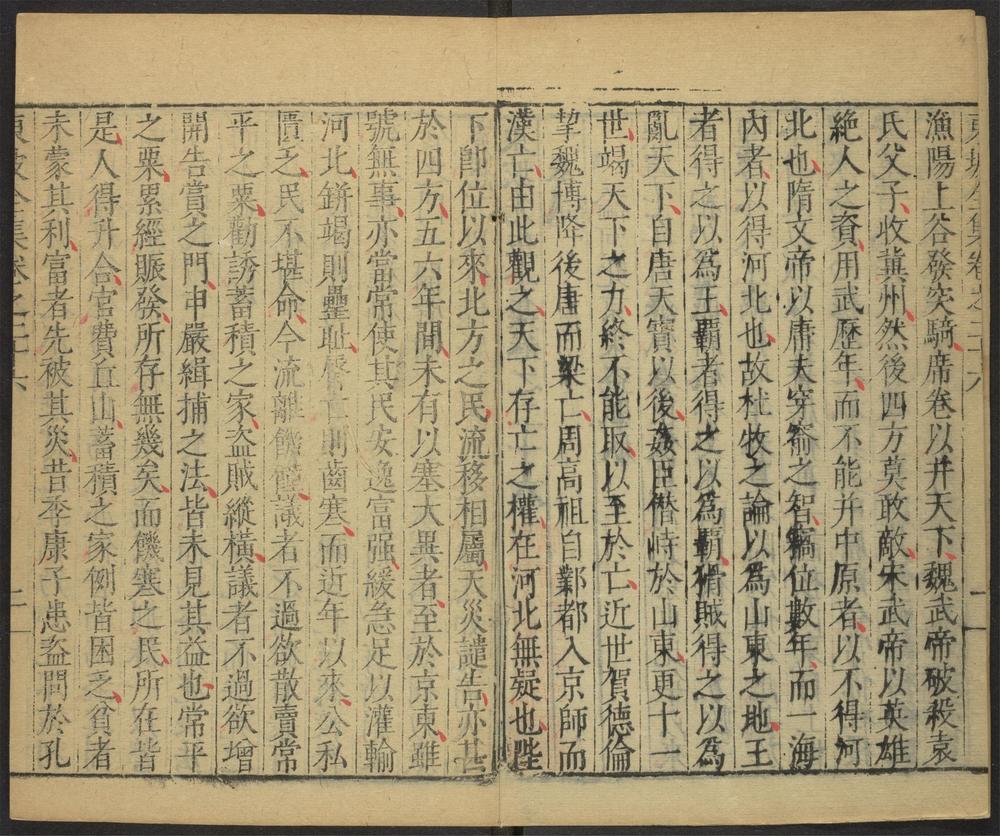 東坡全集卷之二十六
漁陽上谷發突騎席卷以并天下魏武帝破殺袁
氏父子收冀州然後四方莫敢敵宋武帝以英雄
絶人之資用武歷年而不能并中原者以不得河
北也隋文帝以庸夫穿窬之智竊位數年而一海
内者以得河北也故杜牧之論以爲山東之地王
者得之以爲王霸者得之以爲霸猾賊得之以爲
亂天下自唐天寳以後姦臣僭峙於山東更十一
世竭天下之力終不能取以至於亡近世賀德倫
挈魏博降後唐而梁亡周高祖自鄴都入京師而
漢亡由此觀之天下存亡之權在河北無疑也陛
下卽位以來北方之民流移相屬天災譴告亦甚
於四方五六年間未有以塞大異者至於京東雖
號無事亦當常使其民安逸富强緩急足以灌輸
河北缾竭則罍耻脣亡則齒寒而近年以來公私
匱乏民不堪命今流離饑饉議者不過欲散賣常
平之粟勸誘蓄積之家盗賊縱橫議者不過欲增
開告賞之門申嚴緝捕之法皆未見其益也常平
之粟累經賑發所存無幾矣而饑寒之民所在皆
是人得升合官費丘山蓄積之家例皆困乏貧者
未蒙其利富者先被其災昔季康子患盗問於孔
東坡全集卷之二十六 二